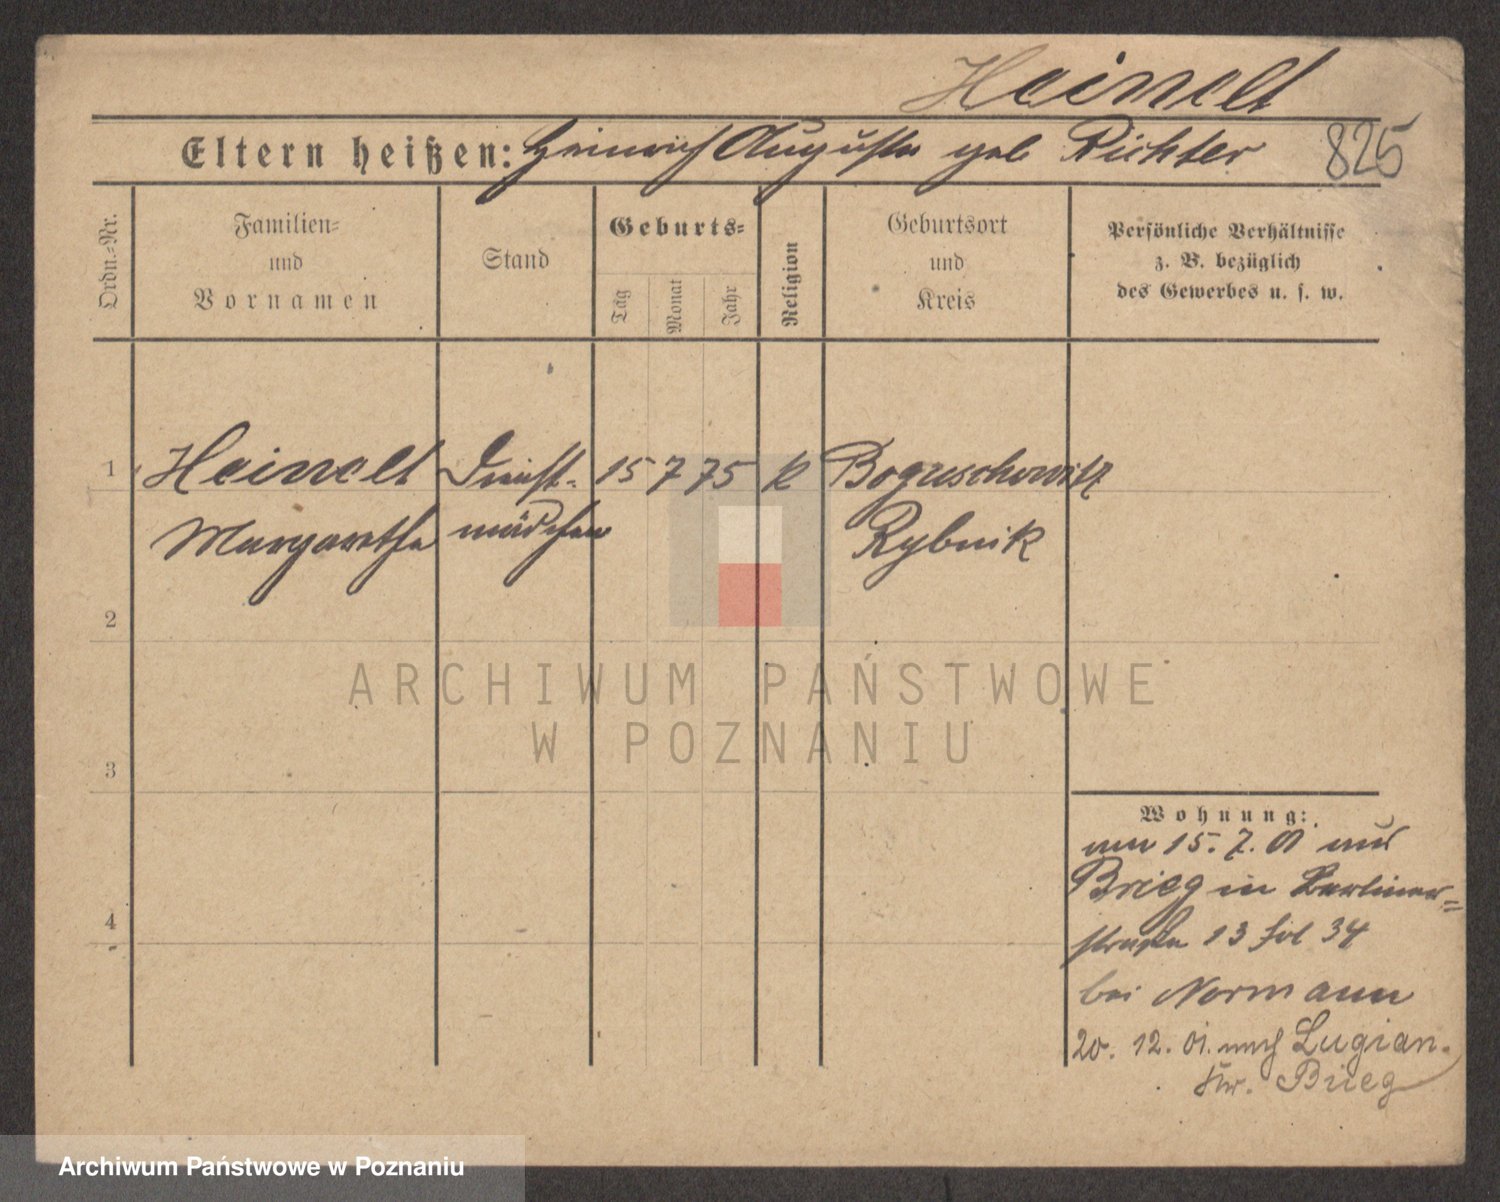 Heinelt
Eltern heißen: Heinrich Auguste geb Richter 825
Ordn.-Nr.
Familien-
und
Vornamen
Stand
Geburts-
Tag
Monat
Jahr
Religion
Geburtsort
und
Kreis
Persönliche Verhältnisse
z. B. bezüglich
des Gewerbes u. s. w.
1 Heinelt Dienst- 15 7 75 k Boguschowitz
Margarethe mädchen Rybnik
2
ARCHIWUM PAŃSTWOWE
W POZNANIU
3
Wohnung:
am 15. 7. 01 aus
4 Brieg in Berliner-
straße 13 34
bei Normann
20. 12. 01. nach
Brieg
Archiwum Państwowe w Poznaniu